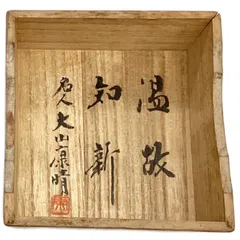 温故
知新
名人 大山康晴